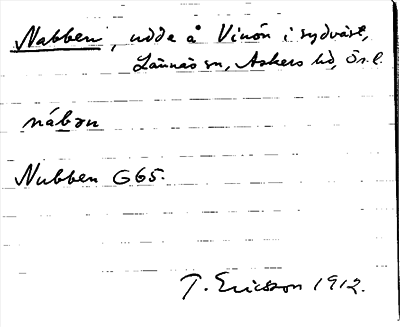 Nabben, udde å Vinön i sydväst,
Lännäs sn, Askers hd, Ör.l.
nábən
Nubben G65.
T. Ericsson 1912.